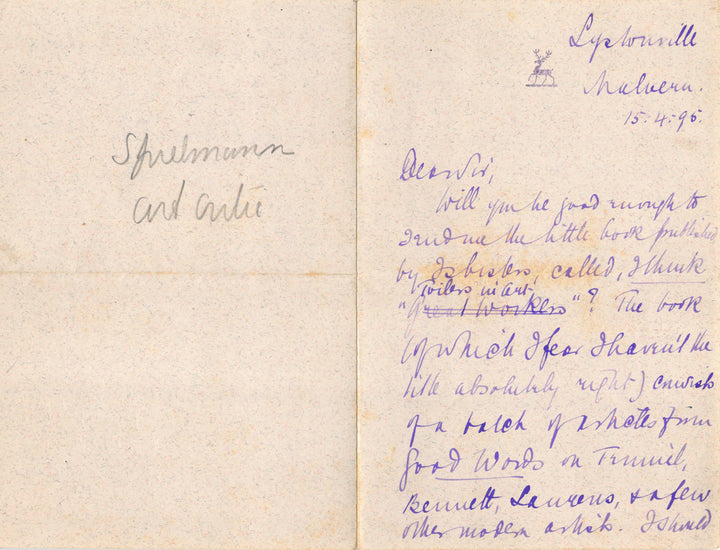 Spielmann
art critic
Lyttonville
Malvern.
15.4.95.
Dear Sir,
Will you be good enough to
send me the little book published
by Isbisters, called, I think
Toilers in Art
"Great Workers"? The book
(of which I fear I haven't the
title absolutely right) consists
of a batch of articles from
Good Words on Tenniel,
Bennett, Laurens, & a few
other modern artists. I should